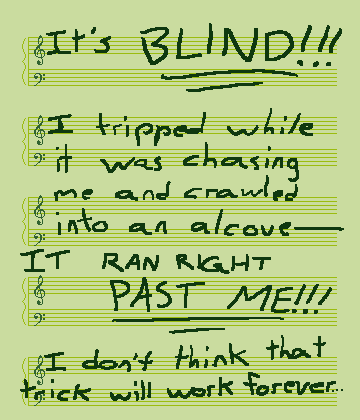 It's BLIND!!!
I tripped while
it was chasing
me and crawled
into an alcove—
IT RAN RIGHT
PAST ME!!!
I don't think that
trick will work forever...